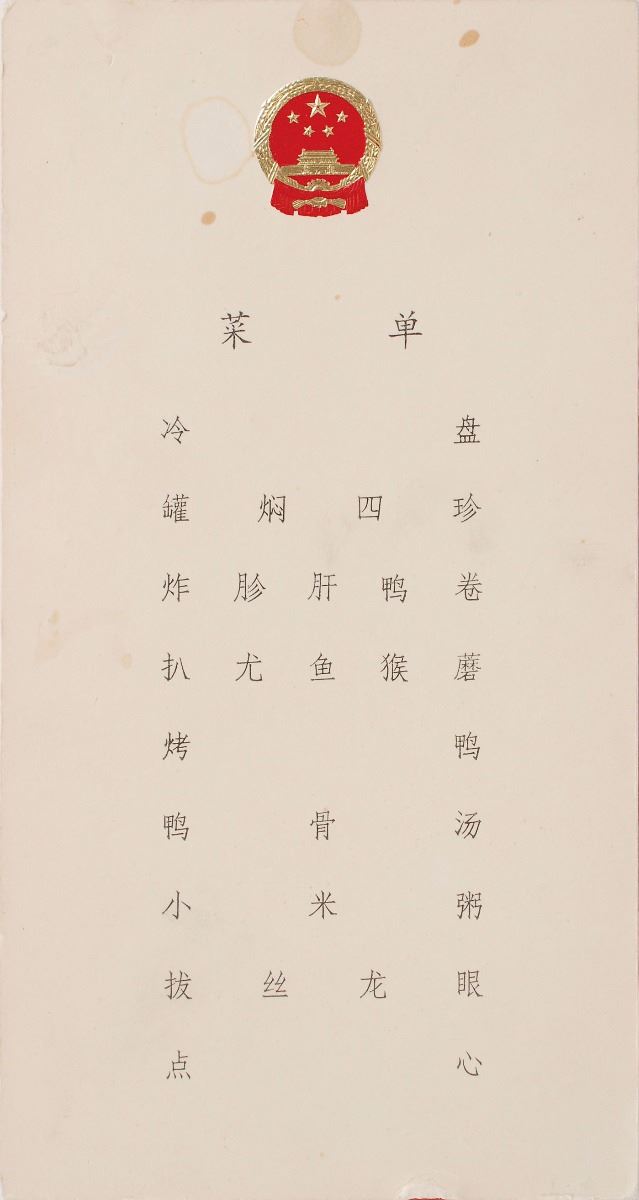 菜单
冷盘
罐焖四珍
炸胗肝鸭卷
扒尤鱼猴蘑
烤鸭
鸭骨汤
小米粥
拔丝龙眼
点心